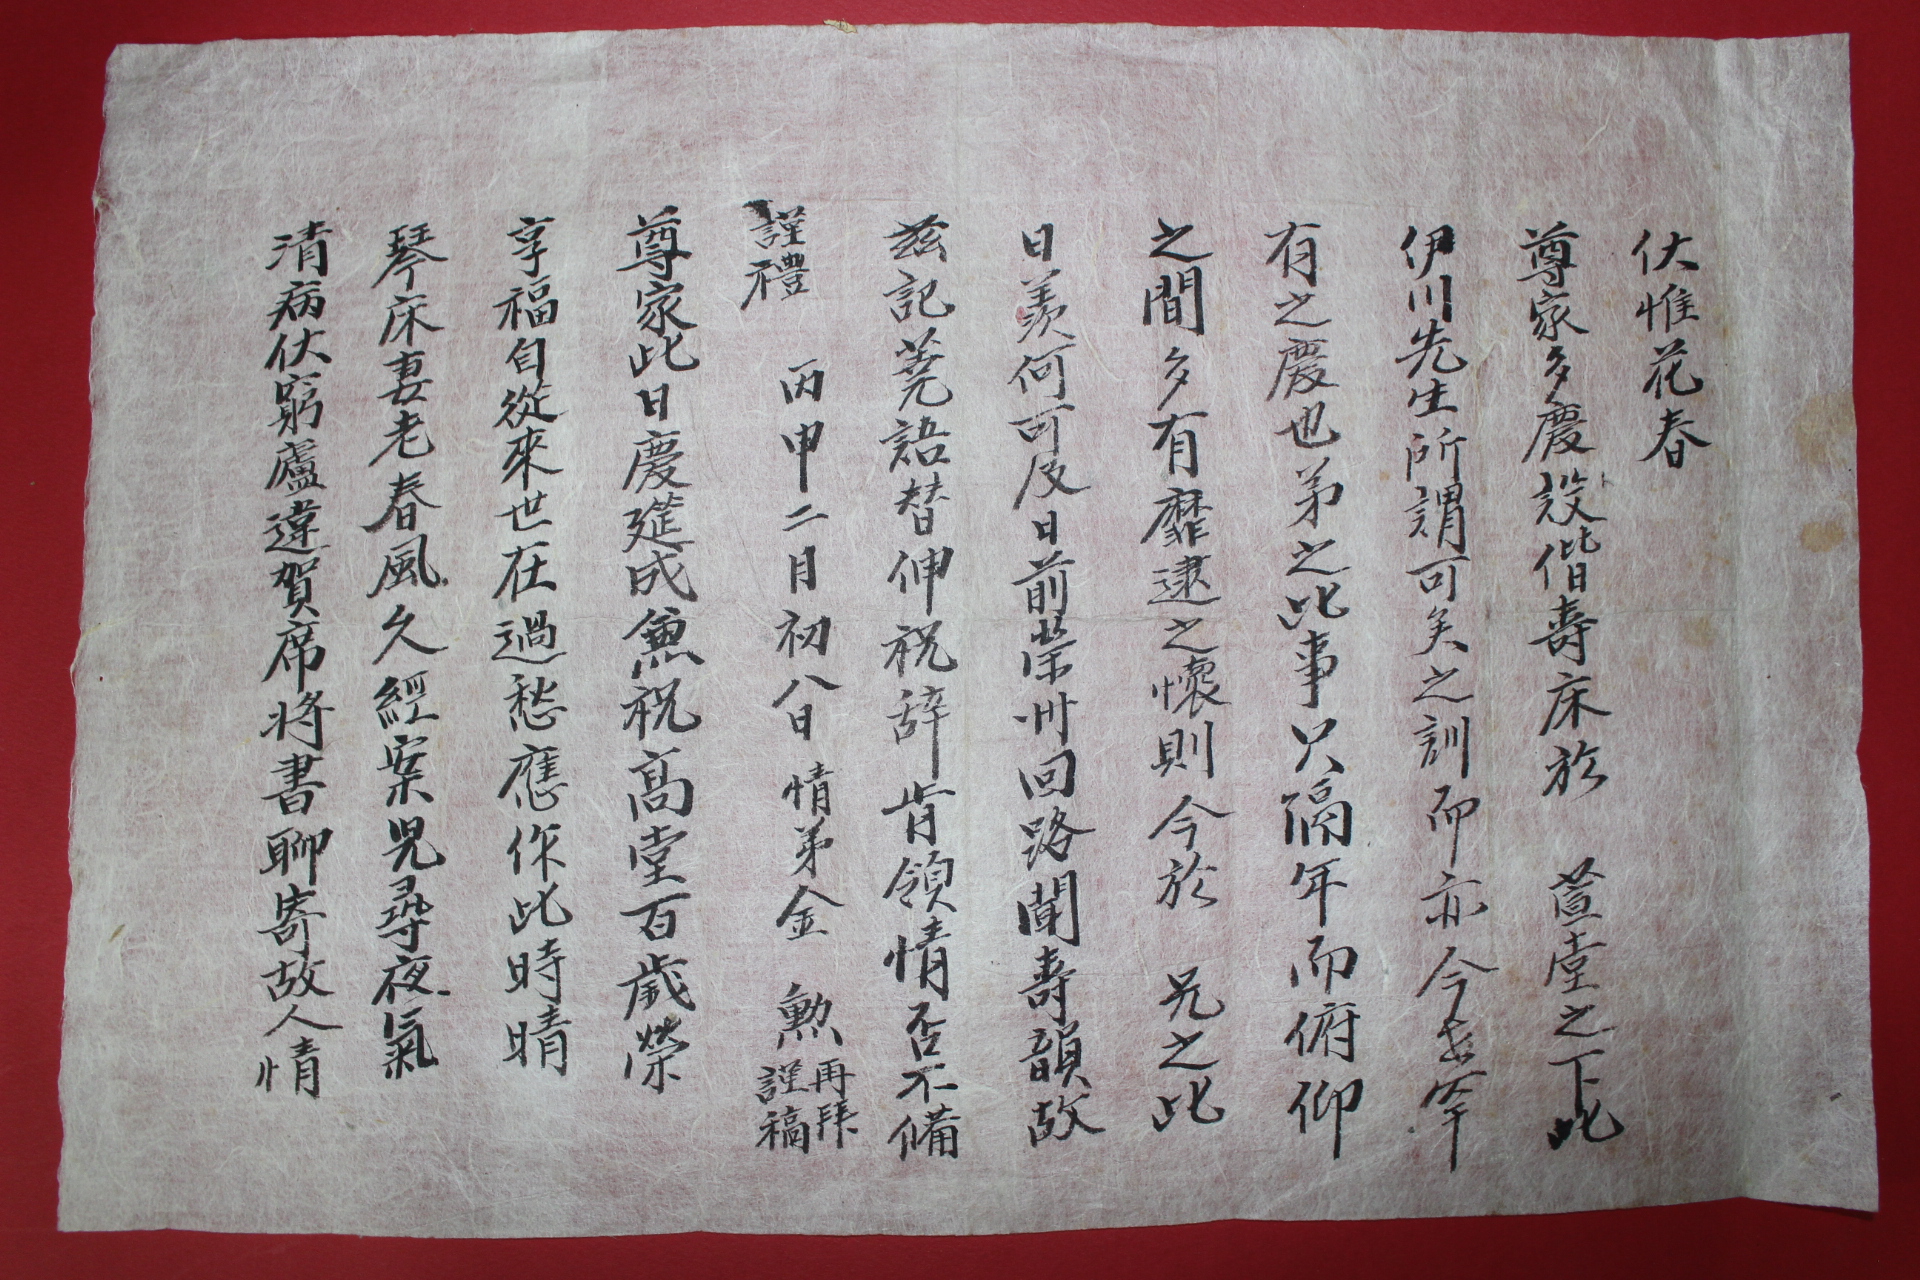 伏惟花春
尊家多慶設偕壽床於 萱堂之下此
伊川先生所謂可矣之訓而亦今世罕
有之慶也弟之此事只隔年而俯仰
之間多有靡逮之懷則今於 兄之此
日羨何可及日前榮州回路聞壽韻故
玆記蕘語替伸祝辞肯領情否不備
謹禮 丙申二月初八日 情弟金 勲 再拜謹稿
尊家此日慶筵成兼祝髙堂百歲榮
享福自從來世在過愁應作此時晴
琴床妻老春風久經案兒尋夜氣
清病伏窮廬違賀席將書聊寄故人情